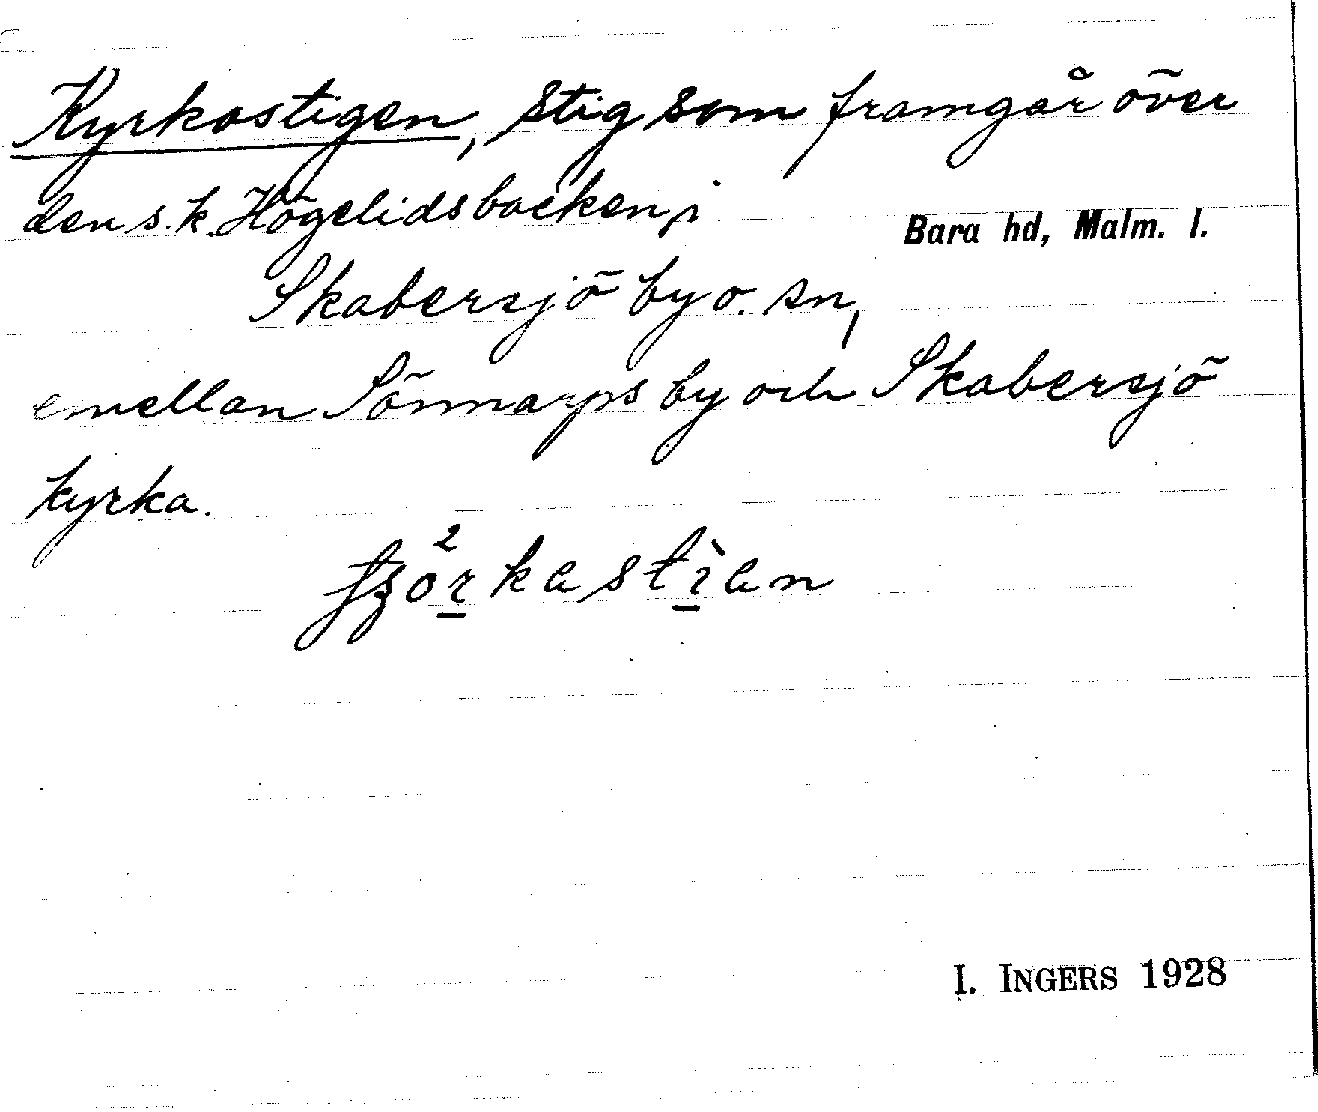 Kyrkostigen, stig som framgår över
den s.k. Högelidsbacken, i
Bara hd, Malm. l.
Skabersjö by o. sn,
emellan Sönnarps by och Skabersjö
kyrka.
I. INGERS 1928